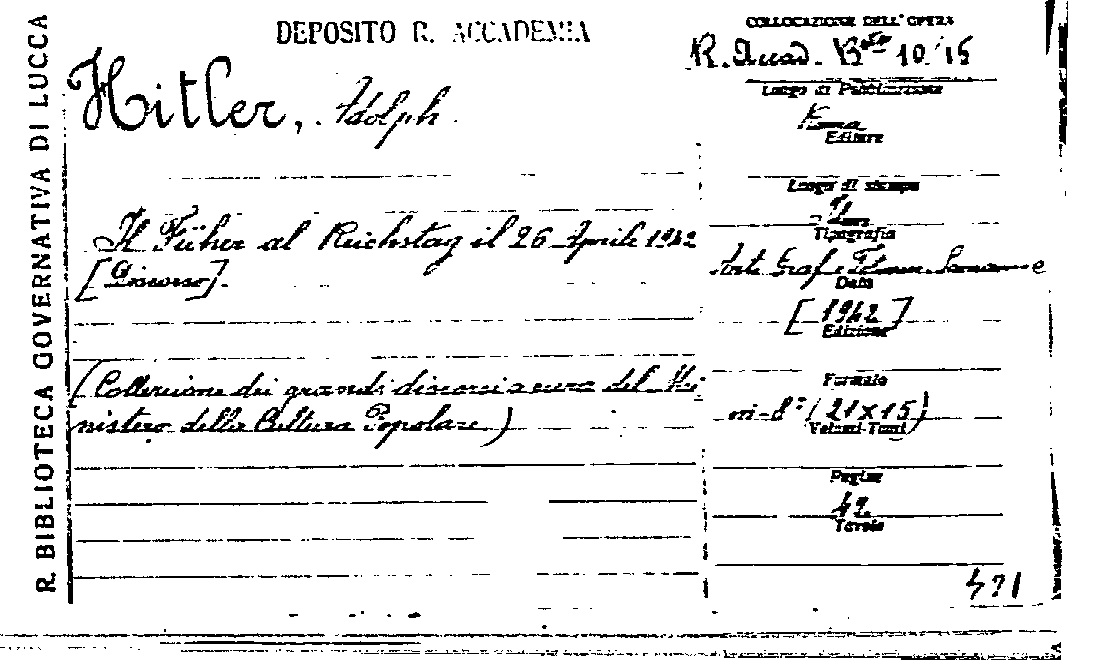 R. BIBLIOTECA GOVERNATIVA DI LUCCA
DEPOSITO R. ACCADEMIA
Hitler, Adolph.
Il Füher al Reichstag il 26 Aprile 1942
[Discorso].
(Collezione dei grandi discorsi a cura del Mi-
nistero della Cultura Popolare)
COLLOCAZIONE DELL'OPERA
R. Accad. 10/15
Luogo di Pubblicazione
Roma
Editore
Luogo di stampa
Tipografia
Arti Graf.
Data
[1942]
Edizione
Formato
in-8° (21x15)
Volumi-Tomi
Pagine
42
Tavole